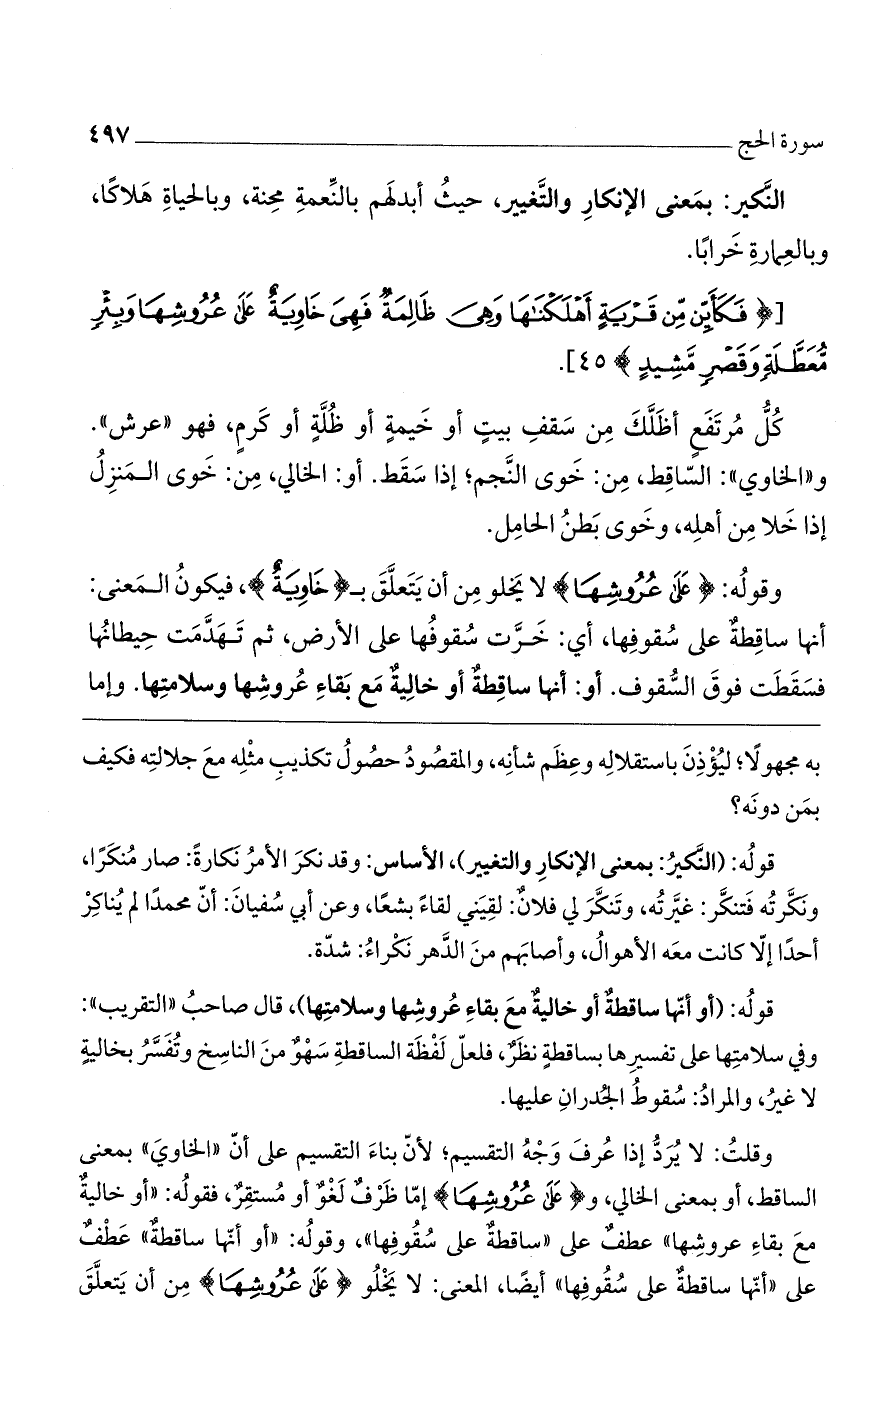 سورة الحج ٤٩٧
النَّكير: بمَعنى الإنكارِ والتَّغيير، حيثُ أبدلَهم بالنِّعمةِ مِحنة، وبالحياةِ هَلاكًا،
وبالعِمارةِ خَرابًا.
[﴿ فَكَأَيِّن مِّن قَرْيَةٍ أَهْلَكْنَاهَا وَهِيَ ظَالِمَةٌ فَهِيَ خَاوِيَةٌ عَلَىٰ عُرُوشِهَا وَبِئْرٍ
مُّعَطَّلَةٍ وَقَصْرٍ مَّشِيدٍ ﴾ ٤٥].
كُلُّ مُرتَفَعٍ أظَلَّكَ مِن سَقفِ بيتٍ أو خَيمةٍ أو ظُلَّةٍ أو كَرمٍ، فهو «عرش».
و«الخاوي»: السّاقِط، مِن: خَوى النَّجم؛ إذا سَقَط. أو: الخالي، مِن: خَوى الـمَنزِلُ
إذا خَلا مِن أهلِه، وخَوى بَطنُ الحامِل.
وقولُه: ﴿ عَلَىٰ عُرُوشِهَا ﴾ لا يَخلو مِن أن يَتعلَّقَ بـ﴿ خَاوِيَةٌ ﴾، فيكونُ الـمَعنى:
أنها ساقِطةٌ على سُقوفِها، أي: خَـرَّت سُقوفُها على الأرض، ثم تَـهَدَّمَت حِيطانُها
فسَقَطَت فوقَ السُّقوف. أو: أنها ساقِطةٌ أو خالِيةٌ مَع بَقاءِ عُروشِها وسلامتِها. وإما
به مجهولًا؛ ليُؤْذِنَ باستقلالِه وعِظَم شأنِه، والمقصُودُ حصُولُ تكذيبِ مثْلِه معَ جلالتِه فكيف
بمَن دونَه؟
قولُه: (النَّكيرُ: بمعنى الإنكارِ والتغيير)، الأساس: وقد نكرَ الأمرُ نَكارةً: صار مُنكَرًا،
ونَكَّرتُه فَتنكَّر: غيَّرتُه، وتَنكَّرَ لي فلانٌ: لقِيَني لقاءً بشعًا، وعن أبي سُفيانَ: أنّ محمدًا لم يُناكِرْ
أحدًا إلّا كانت معَه الأهوالُ، وأصابَهم منَ الدَّهر نَكْراءُ: شدّة.
قولُه: (أو أنّها ساقطةٌ أو خاليةٌ معَ بقاءِ عُروشِها وسلامتِها)، قال صاحبُ «التقريب»:
وفي سلامتِها على تفسيرِها بساقطةٍ نظَرٌ، فلعلّ لَفْظَة الساقطةِ سَهْوٌ منَ الناسِخ وتُفَسَّرُ بخاليةٍ
لا غيرُ، والمرادُ: سُقوطُ الجُدرانِ عليها.
وقلتُ: لا يُرَدُّ إذا عُرفَ وَجْهُ التقسيم؛ لأنّ بناءَ التقسيم على أنّ «الخاويَ» بمعنى
الساقط، أو بمعنى الخالي، و﴿ عَلَىٰ عُرُوشِهَا ﴾ إمّا ظَرْفٌ لَغْوٌ أو مُستقِرٌ، فقولُه: «أو خاليةٌ
معَ بقاءِ عروشِها» عطفٌ على «ساقطةٌ على سُقُوفِها»، وقولُه: «أو أنّها ساقطةٌ» عَطْفٌ
على «أنّها ساقطةٌ على سُقُوفِها» أيضًا، المعنى: لا يَخْلُو ﴿ عَلَىٰ عُرُوشِهَا ﴾ مِن أن يَتعلَّقَ